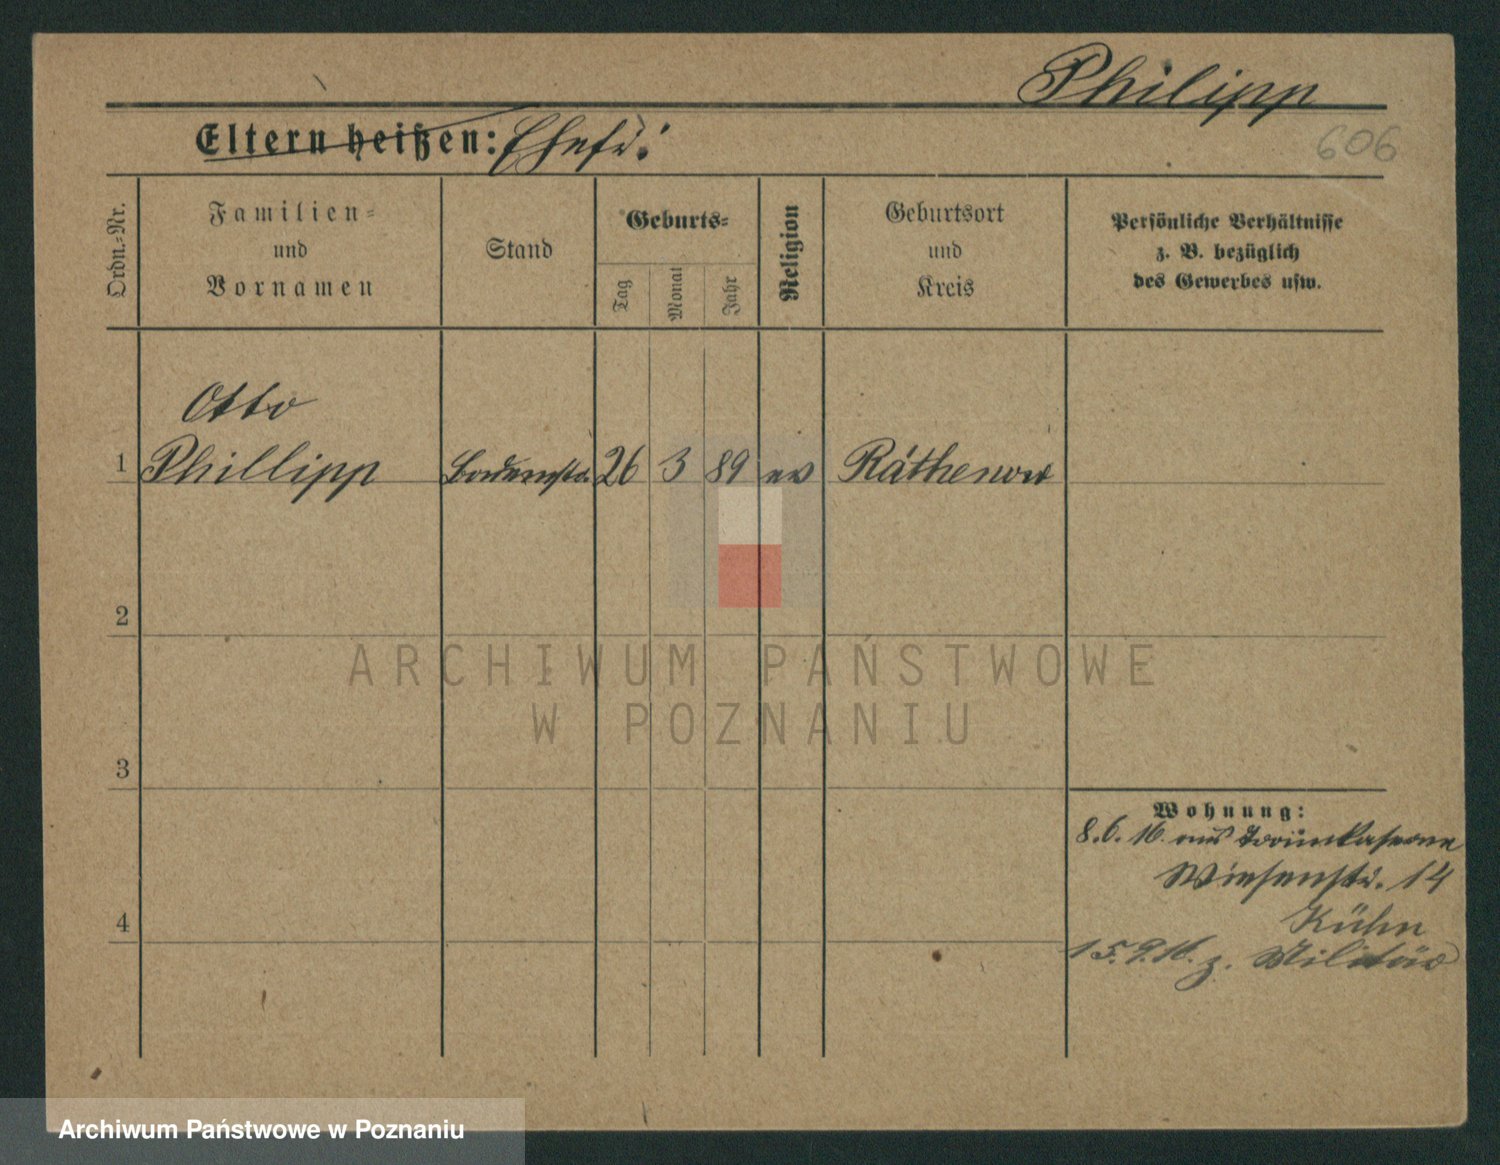 Philipp
606
Eltern heißen: Ehefr:
Ordn.=Nr.
Familien=
und
Vornamen
Stand
Geburts=
Tag
Monat
Jahr
Religion
Geburtsort
und
Kreis
Persönliche Verhältnisse
z. B. bezüglich
des Gewerbes usw.
Otto
1 Phillipp 26 3 89 ev Ráthenow
2
3
4
Wohnung:
8.6.16. aus
Wiesenstr. 14
Kühn
15.9.16. z. Militär
ARCHIWUM PAŃSTWOWE
W POZNANIU
Archiwum Państwowe w Poznaniu